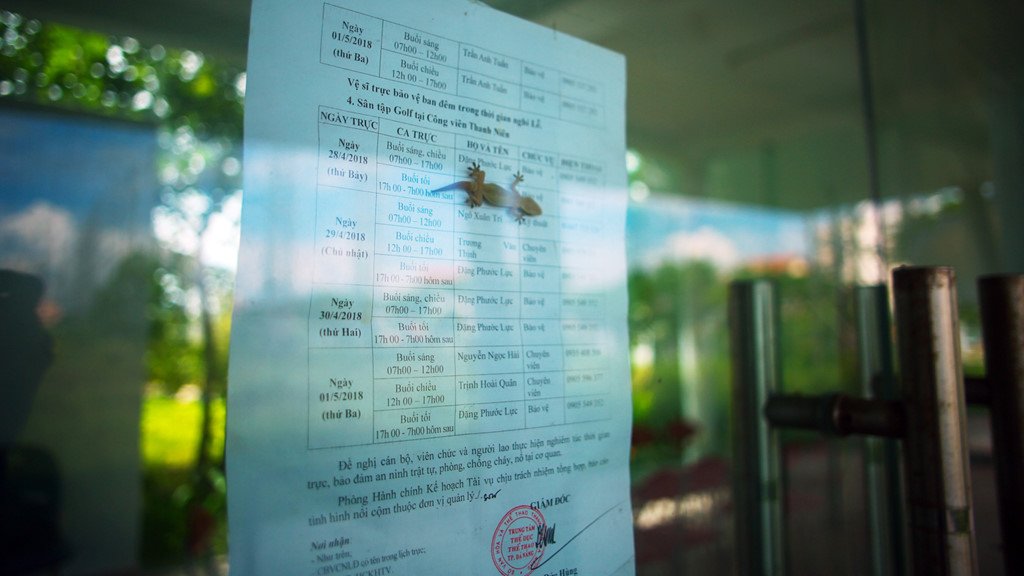 Ngày 01/5/2018 (thứ Ba) Buổi sáng 07h00 – 12h00 Trần Anh Tuấn Bảo vệ
Buổi chiều 12h 00 – 17h00 Trần Anh Tuấn Bảo vệ
Vệ sĩ trực bảo vệ ban đêm trong thời gian nghỉ Lễ.
4. Sân tập Golf tại Công viên Thanh Niên
NGÀY TRỰC CA TRỰC HỌ VÀ TÊN CHỨC VỤ ĐIỆN THOẠI
Ngày 28/4/2018 (thứ Bảy) Buổi sáng, chiều 07h00 – 17h00 Đặng Phước Lực Bảo vệ
Buổi tối 17h 00 - 7h00 hôm sau
Ngày 29/4/2018 (Chủ nhật) Buổi sáng 07h00 – 12h00 Ngô Xuân Trí Kỹ thuật
Buổi chiều 12h 00 – 17h00 Trương Văn Thịnh Chuyên viên
Buổi tối 17h 00 - 7h00 hôm sau Đặng Phước Lực Bảo vệ
Ngày 30/4/2018 (thứ Hai) Buổi sáng, chiều 07h00 – 17h00 Đặng Phước Lực Bảo vệ 0905 549 352
Buổi tối 17h 00 - 7h00 hôm sau Đặng Phước Lực Bảo vệ 0905 549 352
Ngày 01/5/2018 (thứ Ba) Buổi sáng 07h00 – 12h00 Nguyễn Ngọc Hải Chuyên viên
Buổi chiều 12h00 – 17h00 Trịnh Hoài Quân Chuyên viên
Buổi tối 17h 00 - 7h00 hôm sau Đặng Phước Lực Bảo vệ 0905 549 352
Đề nghị cán bộ, viên chức và người lao thực hiện nghiêm túc thời gian
trực, bảo đảm an ninh trật tự, phòng, chống cháy, nổ tại cơ quan.
Phòng Hành chính Kế hoạch Tài vụ chịu trách nhiệm tổng hợp, báo cáo
tình hình nổi cộm thuộc đơn vị quản lý./.
GIÁM ĐỐC
TRUNG TÂM
THỂ DỤC
THỂ THAO
TP. ĐÀ NẴNG
Nơi nhận
- Như trên;
- CBVCNLĐ có tên trong lịch trực;
HCKHTV.
Hùng